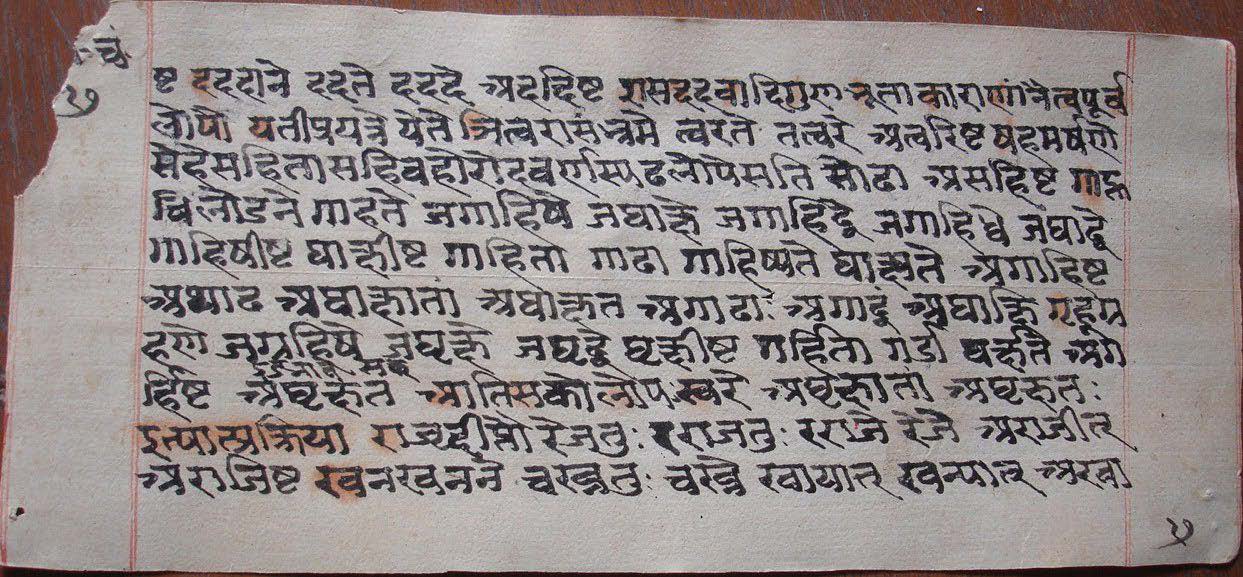 च
१७
ष्ट ददहाने ददते दददे अददिष्ट शसददवादिगुणभूताकाराणांनेत्वपूर्व
लोपौ यतीप्रयत्ने येते ञित्वरासंभ्रमे त्वरते तत्वरे अत्वरिष्ट षहमर्षणे
सेहेसहितासहिवहोरोदवर्णस्यढलोपेसति सोढा असहिष्ट गाहू
विलोडने गाहते जगाहिषे जघाक्षे जगाहिढ्वे जगाहिध्वे जघाढ्वे
गाहिषीष्ट घाक्षीष्ट गाहिता गाढा गाहिष्यते घाक्ष्यते अगाहिष्ट
अगाढ अघाक्षातां अघाक्षत अगाढाः अगाढ्वं अघाक्षि गृहूग्र
हणे जगृहिषे जघृक्षे जघृढ्वे घृक्षीष्ट गर्हिता गर्ढा घर्क्ष्यते अग
र्हिष्ट अघृक्षत आतिसकोलोपःस्वरे अघृक्षातां अघृक्षतः
इत्यात्मप्रक्रिया राजृदीप्तौ रेजतुः रराजतुः रराजे रेजे अराजीत्
अराजिष्ट खनखनने चख्नतुः चख्ने खायात् खन्यात् अखा
१७